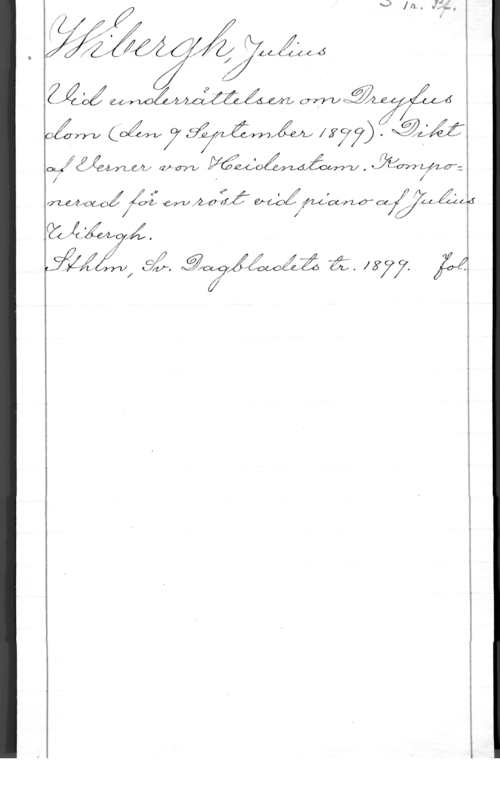 Wibergh, Julius
Vid underrättelsen om Dreyfus
dom (den 9 September 1899). Dikt
af Verner von Heidenstam. Kompo=
nerad för en röst vid piano af Julius
Wibergh.
Sthlm, Sv. Dagbladets tr. 1899. Fol.